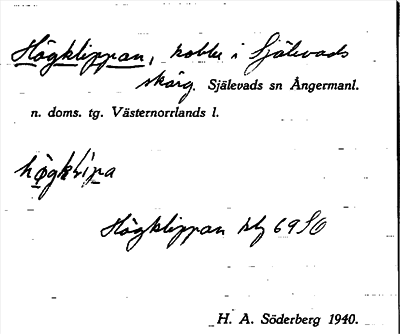 Högklippan, kobbe i Själevads
skärg. Själevads sn Ångermanl.
n. doms. tg. Västernorrlands l.
högklipa
Högklippan blz 69 SO
H. A. Söderberg 1940.